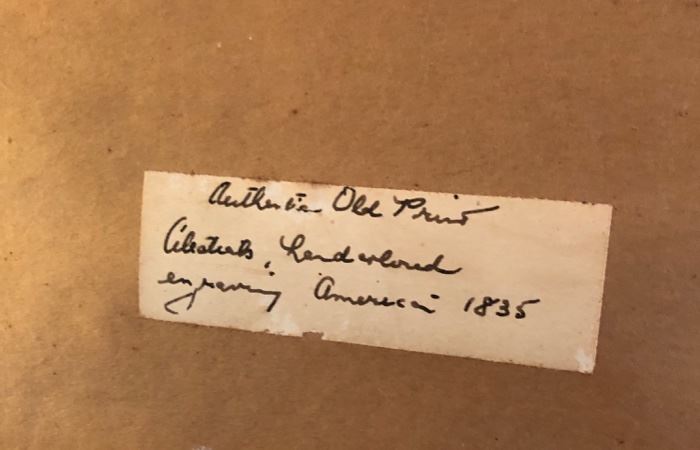 Authentic Old Print
Celestials, handcolored
engraving American 1835